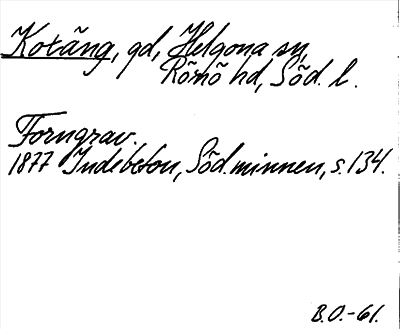 Kotäng, gd, Helgona sn,
Rönö hd, Söd. l.
Forngrav.
1877 Indebetou, Söd. minnen, s. 134.
B.O.-61.